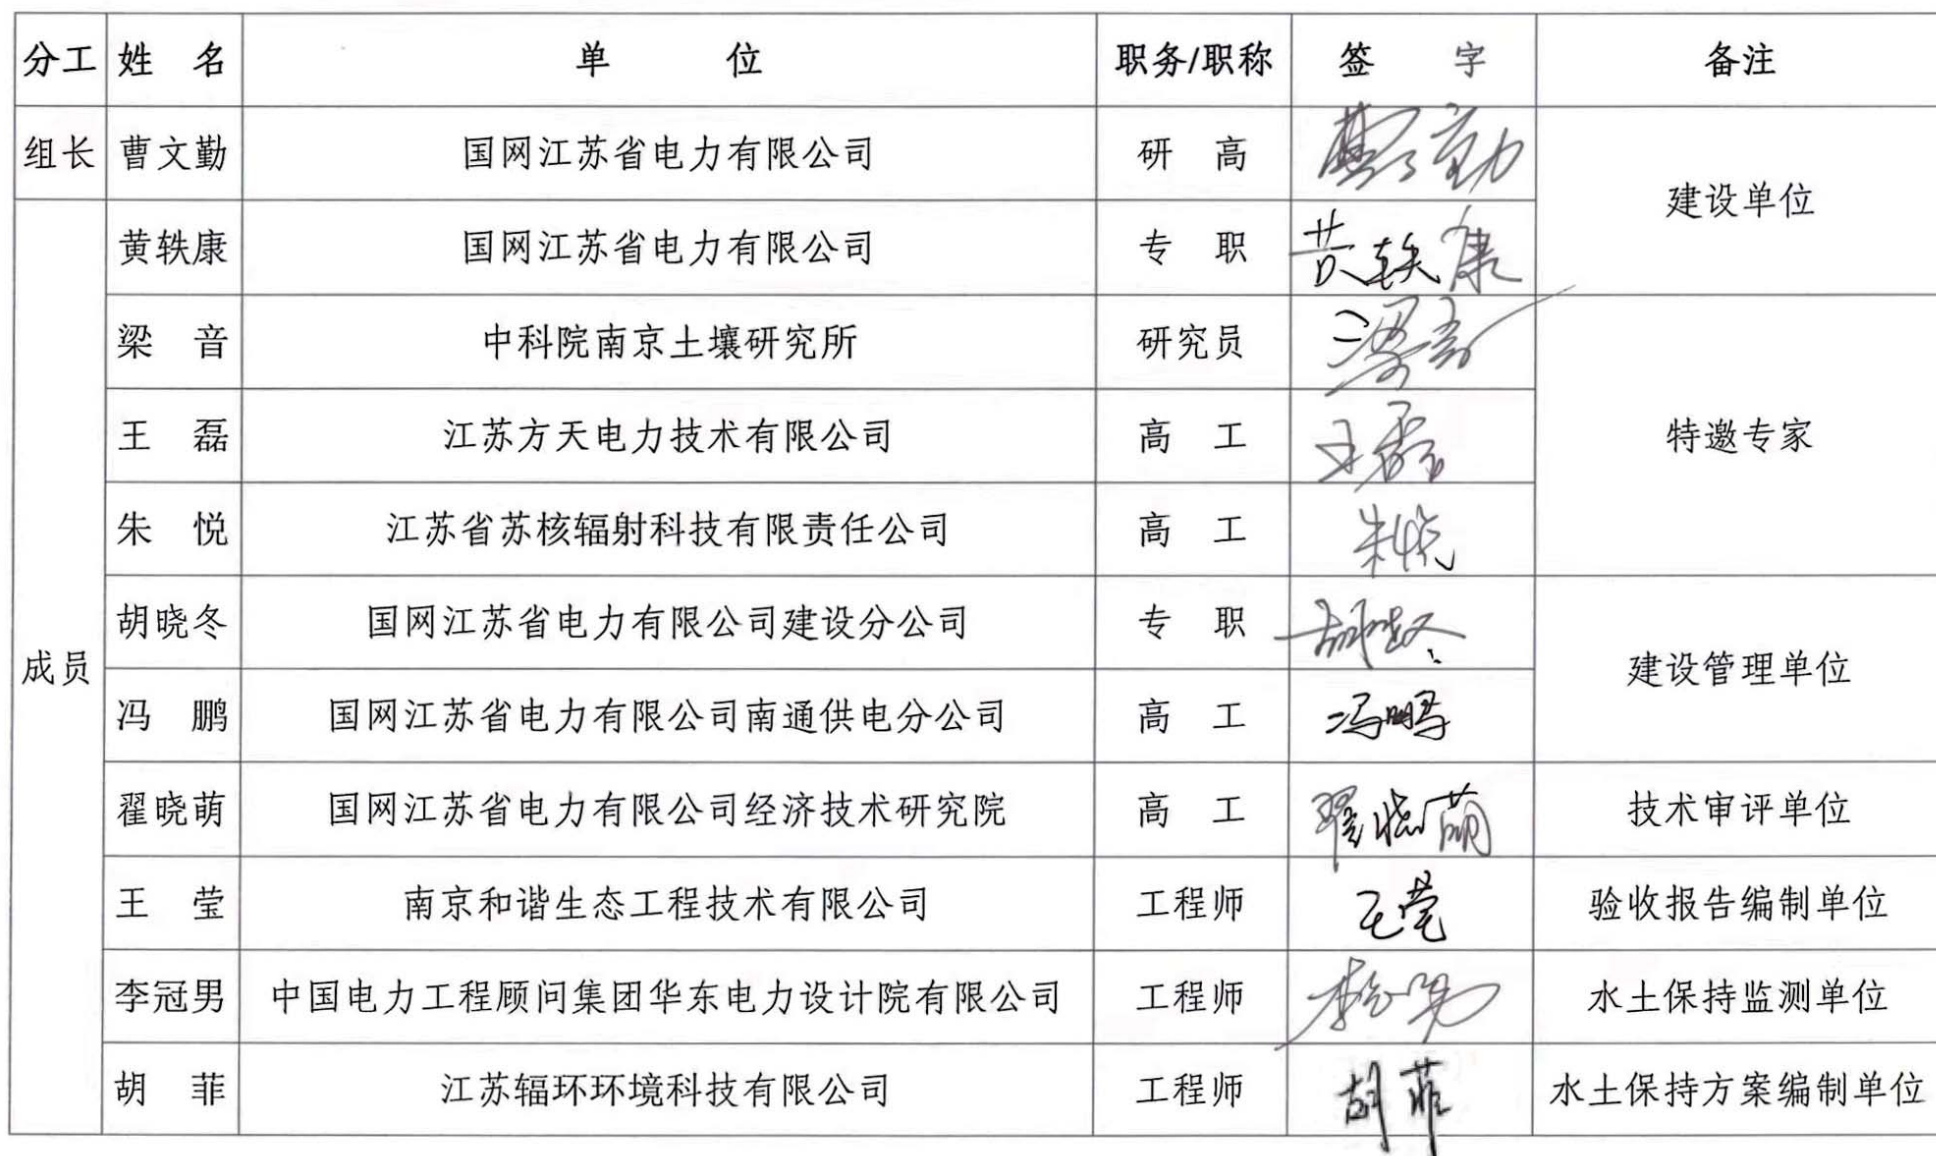 分工 姓 名 单 位 职务/职称 签 字 备注
组长 曹文勤 国网江苏省电力有限公司 研 高 曹文勤 建设单位
成员 黄轶康 国网江苏省电力有限公司 专 职 黄轶康
梁 音 中科院南京土壤研究所 研究员 梁音 特邀专家
王 磊 江苏方天电力技术有限公司 高 工 王磊
朱 悦 江苏省苏核辐射科技有限责任公司 高 工 朱悦
胡晓冬 国网江苏省电力有限公司建设分公司 专 职 胡晓冬 建设管理单位
冯 鹏 国网江苏省电力有限公司南通供电分公司 高 工 冯鹏
翟晓萌 国网江苏省电力有限公司经济技术研究院 高 工 翟晓萌 技术审评单位
王 莹 南京和谐生态工程技术有限公司 工程师 王莹 验收报告编制单位
李冠男 中国电力工程顾问集团华东电力设计院有限公司 工程师 李冠男 水土保持监测单位
胡 菲 江苏辐环环境科技有限公司 工程师 胡菲 水土保持方案编制单位